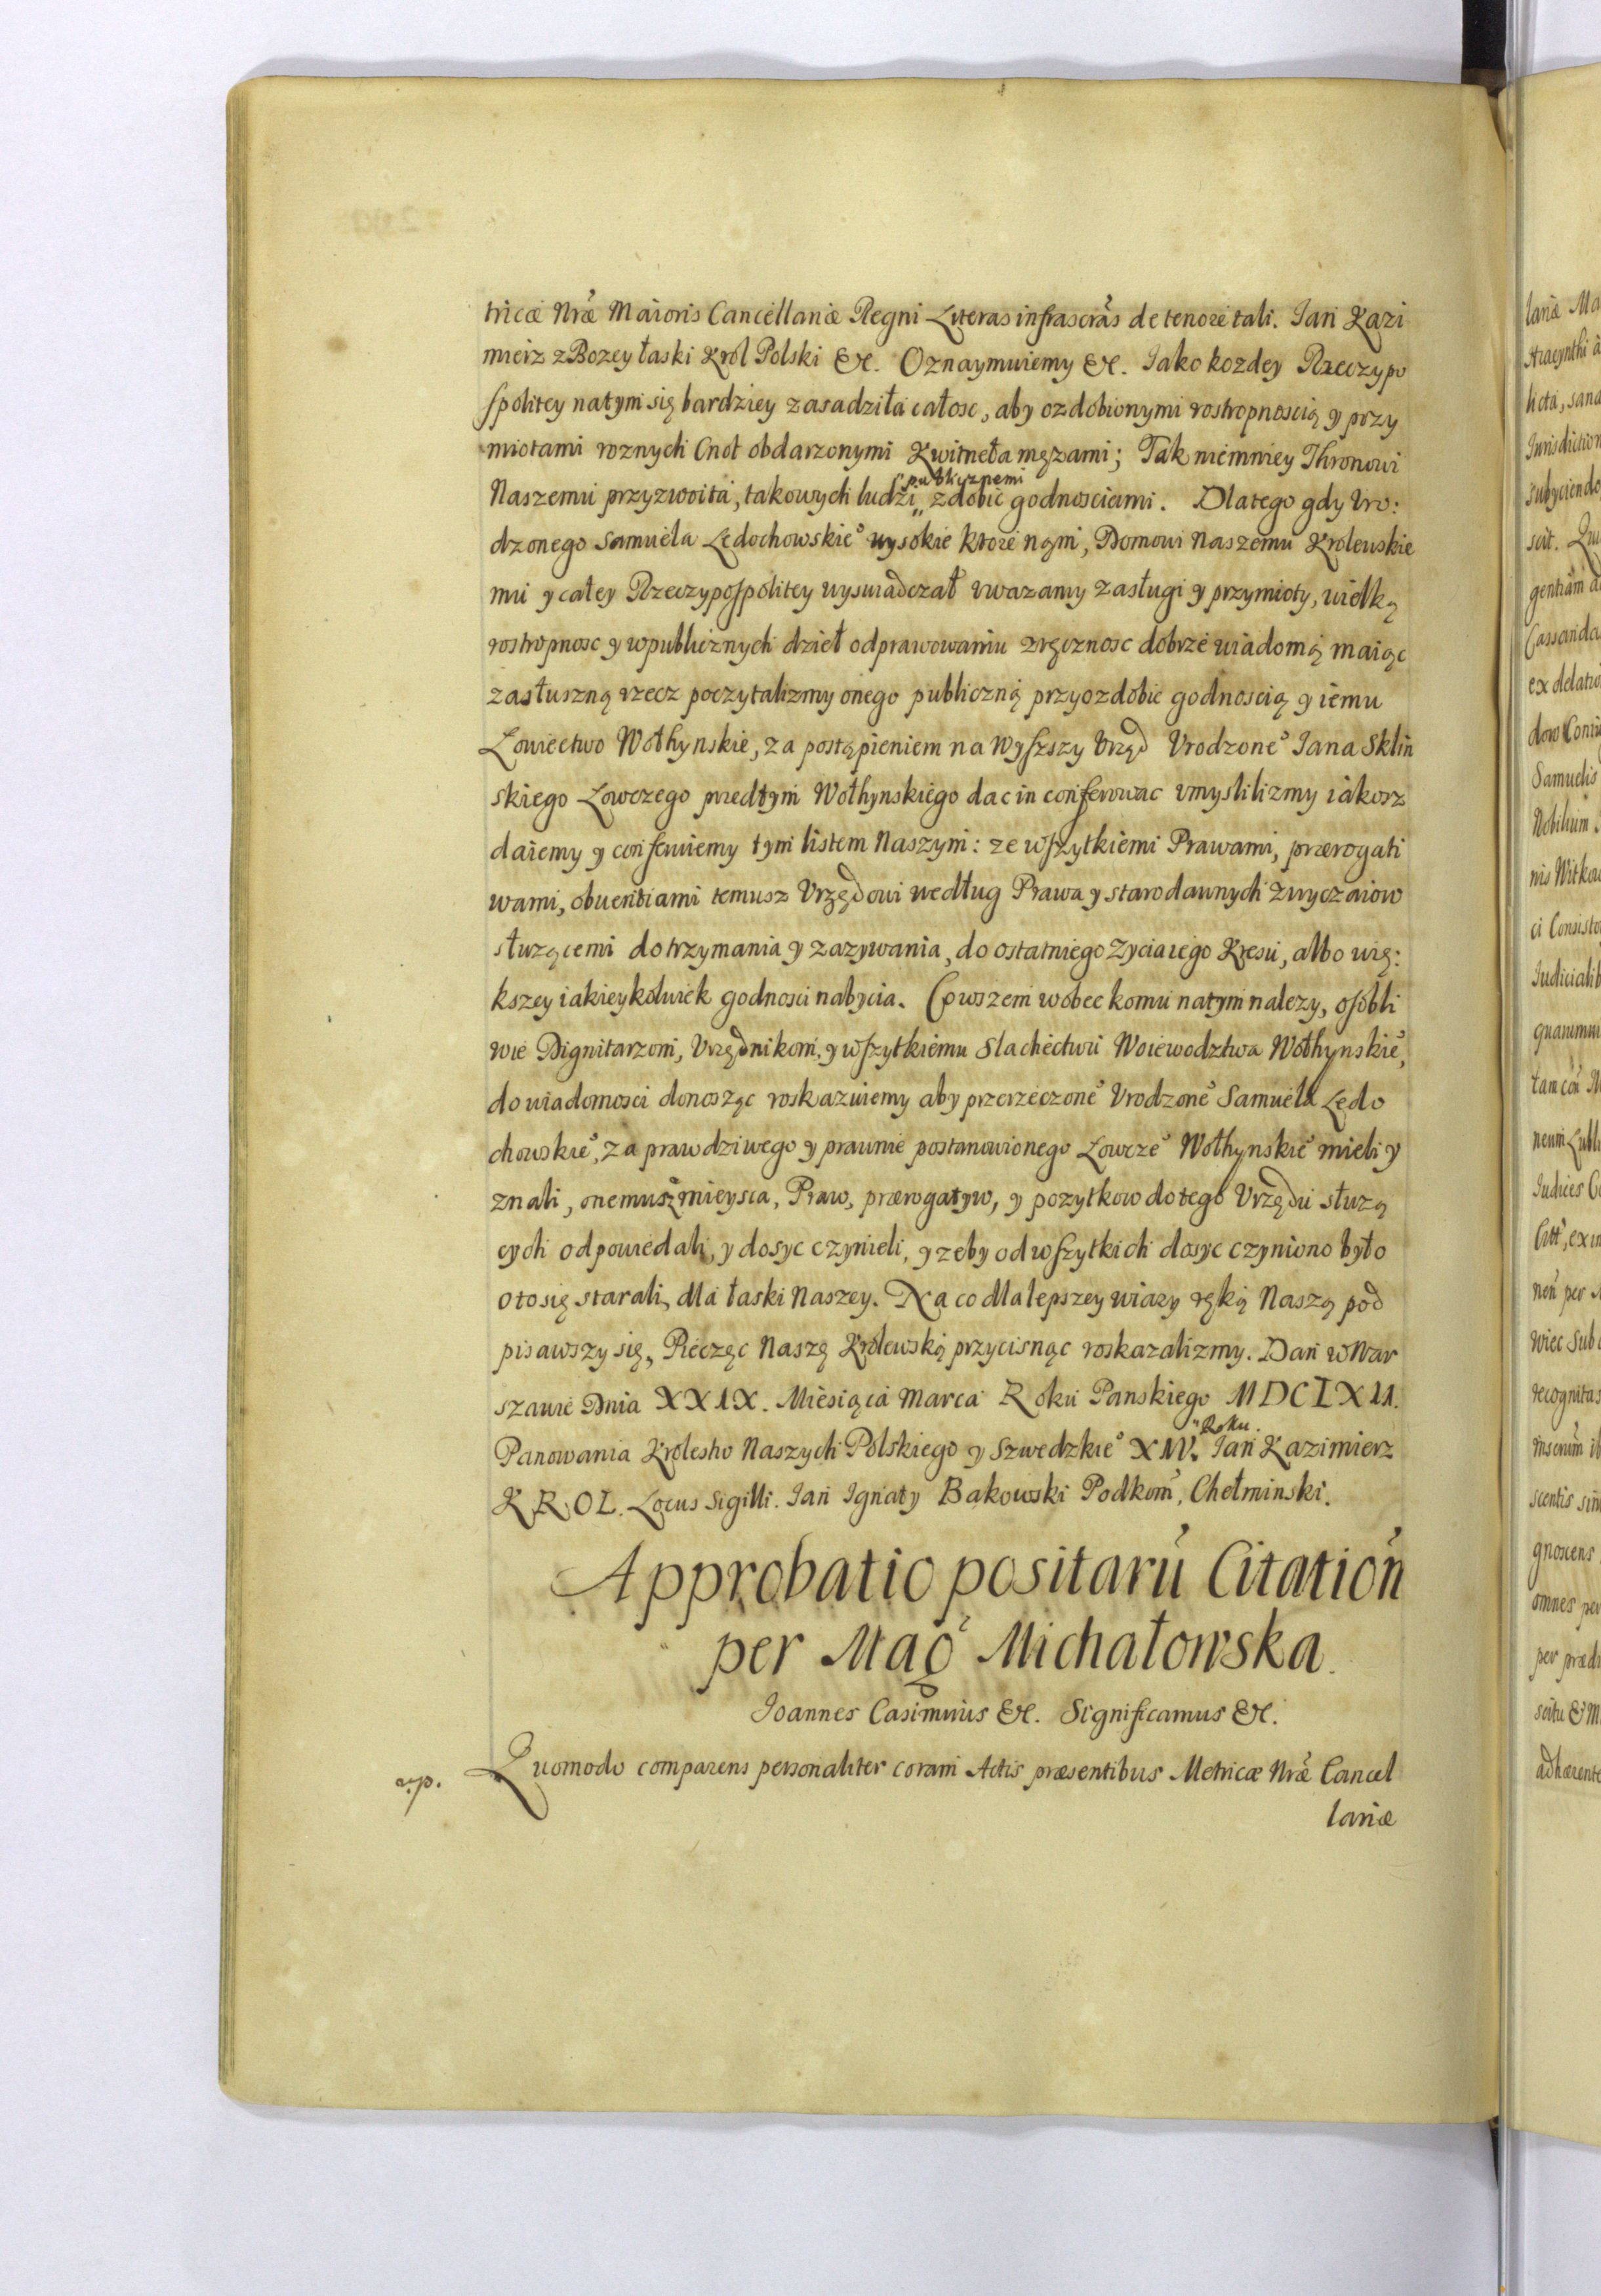 tricæ Nræ Maioris Cancellariæ Regni Literas infrascras de tenore tali. Jan Kazi
mierz z Bozey łaski Krol Polski &c. Oznaymuiemy &c. Iako kozdey Rzeczypo
spolitey natym się bardziey zasadziła całosc, aby ozdobionymi rostropnoscią y przy
miotami roznych Cnot obdarzonymi Kwitneła męzami; Tak niemniey Thronowi
Naszemu przyzwoita, takowych ludzi „ publicznemi zdobic godnosciami. Dlatego gdy Vro:
dzonego Samuela Ledochowskie° wysokie ktore nąm, Domowi Naszemu Krolewskie
mu y całey Rzeczypospolitey wyswiadczał vwazamy zasługi y przymioty, wielką
rostropnosc y wpublicznych dzieł odprawowaniu zręcznosc dobrze wiadomą maiąc
zasłuszną rzecz poczytalizmy onego publiczną przyozdobic godnoscią y iemu
Łowiectwo Wołhynskie, za postąpieniem na Wyższy Vrząd Vrodzone° Jana Sklin
skiego Łowczego przedtym Wołhynskiego dac in conferowac vmyslilizmy iakosz
daiemy y conferuiemy tym listem Naszym: ze wszytkiemi Prawami, prærogati
wami, obuentiami temusz Vrzędowi według Prawa y starodawnych zwyczaiow
słuzącemi do trzymania y zazywania, do ostatniego Zycia iego Kresu, albo wię:
kszey iakieykolwiek godnosci nabycia. Co wszem wobec komu natym nalezy, osobli
wie Dignitarzom, Vrzędnikom, y wszytkiemu Slachectwu Woiewodztwa Wołhynskie°,
do wiadomosci donosząc roskazuiemy aby przerzeczone° Vrodzone° Samuela Ledo
chowskie°, za prawdziwego y prawnie postanowionego Łowcze° Wołhynskie° mieli y
znali, onemusz mieysca, Praw, prærogatyw, y pozytkow do tego Vrzędu słuzą
cych odpowiedali, y dosyc czynieli, y zeby od wszytkich dosyc czyniono było
oto się starali, dla łaski Naszey. Na co dla lepszey wiary ręką Naszą pod
pisawszy się, Pieczęc Naszą Krolewską przycisnąc roskazalizmy. Dan w War
szawie Dnia XXIX. Miesiąca Marca Roku Panskiego MDCLXII.
Panowania Krolestw Naszych Polskiego y Szwedzkie° XIV. „Roku. Jan Kazimierz
KROL. Locus Sigilli. Jan Ignaty Bąkowski Podkom, Chełminski.
Approbatio positarū Citation
per Mag Michałowska.
Joannes Casimirus &c. Significamus &c.
Quomodo comparens personaliter coram Actis præsentibus Metricæ Nræ Cancel
lariæ